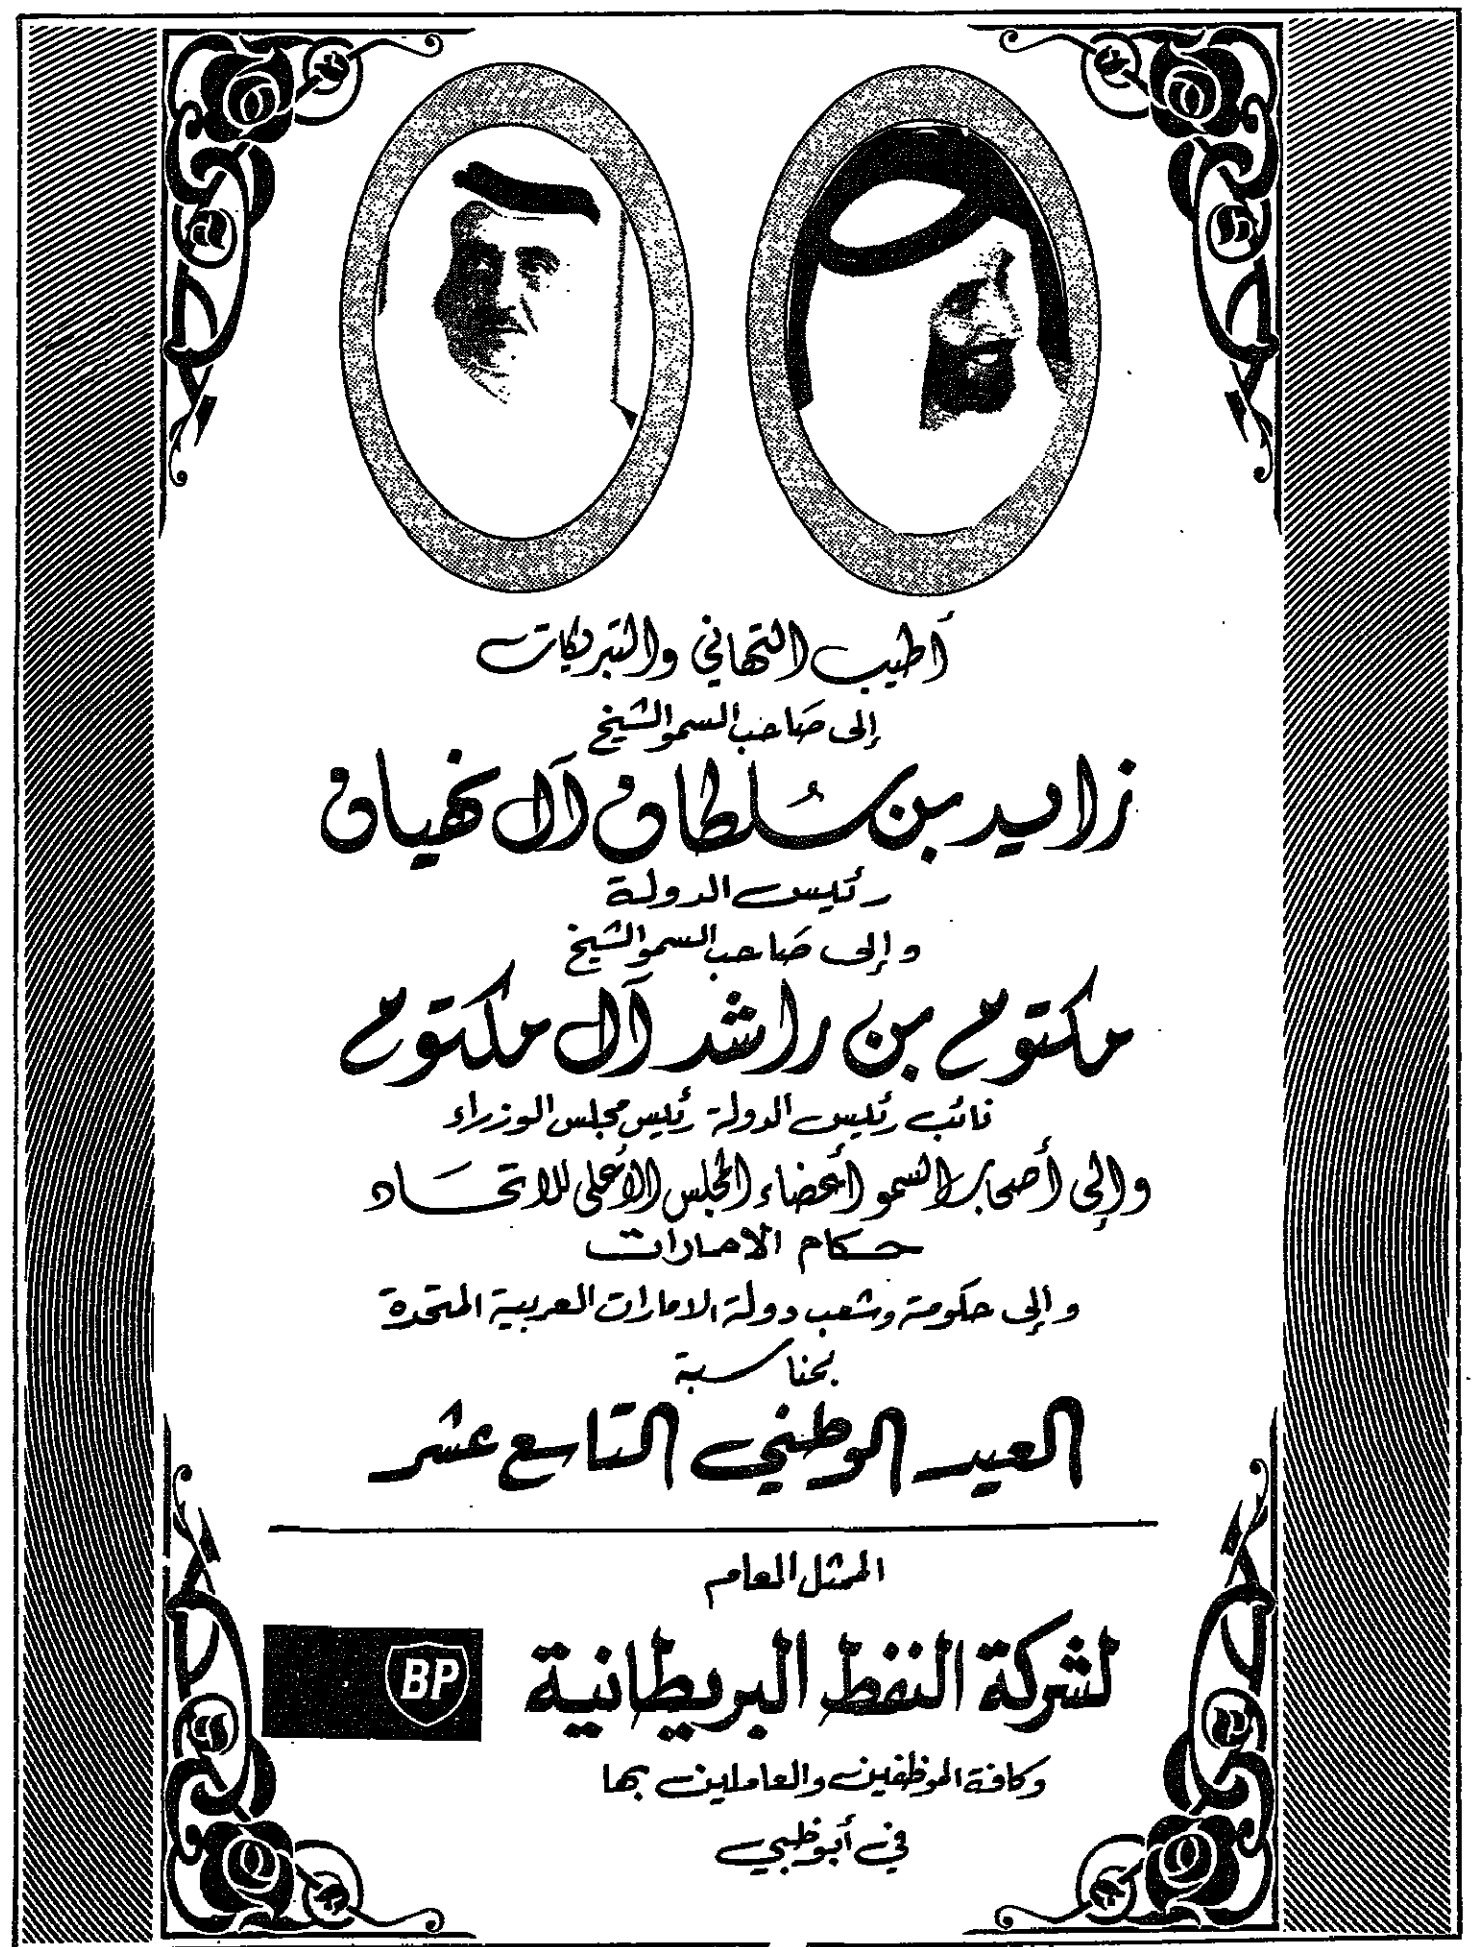 أطيب التهاني والتبريكات
إلى صاحب السمو الشيخ
زايد بن سلطان آل نهيان
رئيس الدولة
وإلى صاحب السمو الشيخ
مكتوم بن راشد آل مكتوم
نائب رئيس الدولة رئيس مجلس الوزراء
وإلى أصحاب السمو أعضاء المجلس الأعلى للاتحاد
حكام الامارات
وإلى حكومة وشعب دولة الامارات العربية المتحدة
بمناسبة
العيد الوطني التاسع عشر
الممثل العام
لشركة النفط البريطانية
BP
وكافة الموظفين والعاملين بها
في أبوظبي